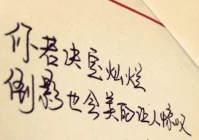 你若决定灿烂
倒影也会美的让人惊叹